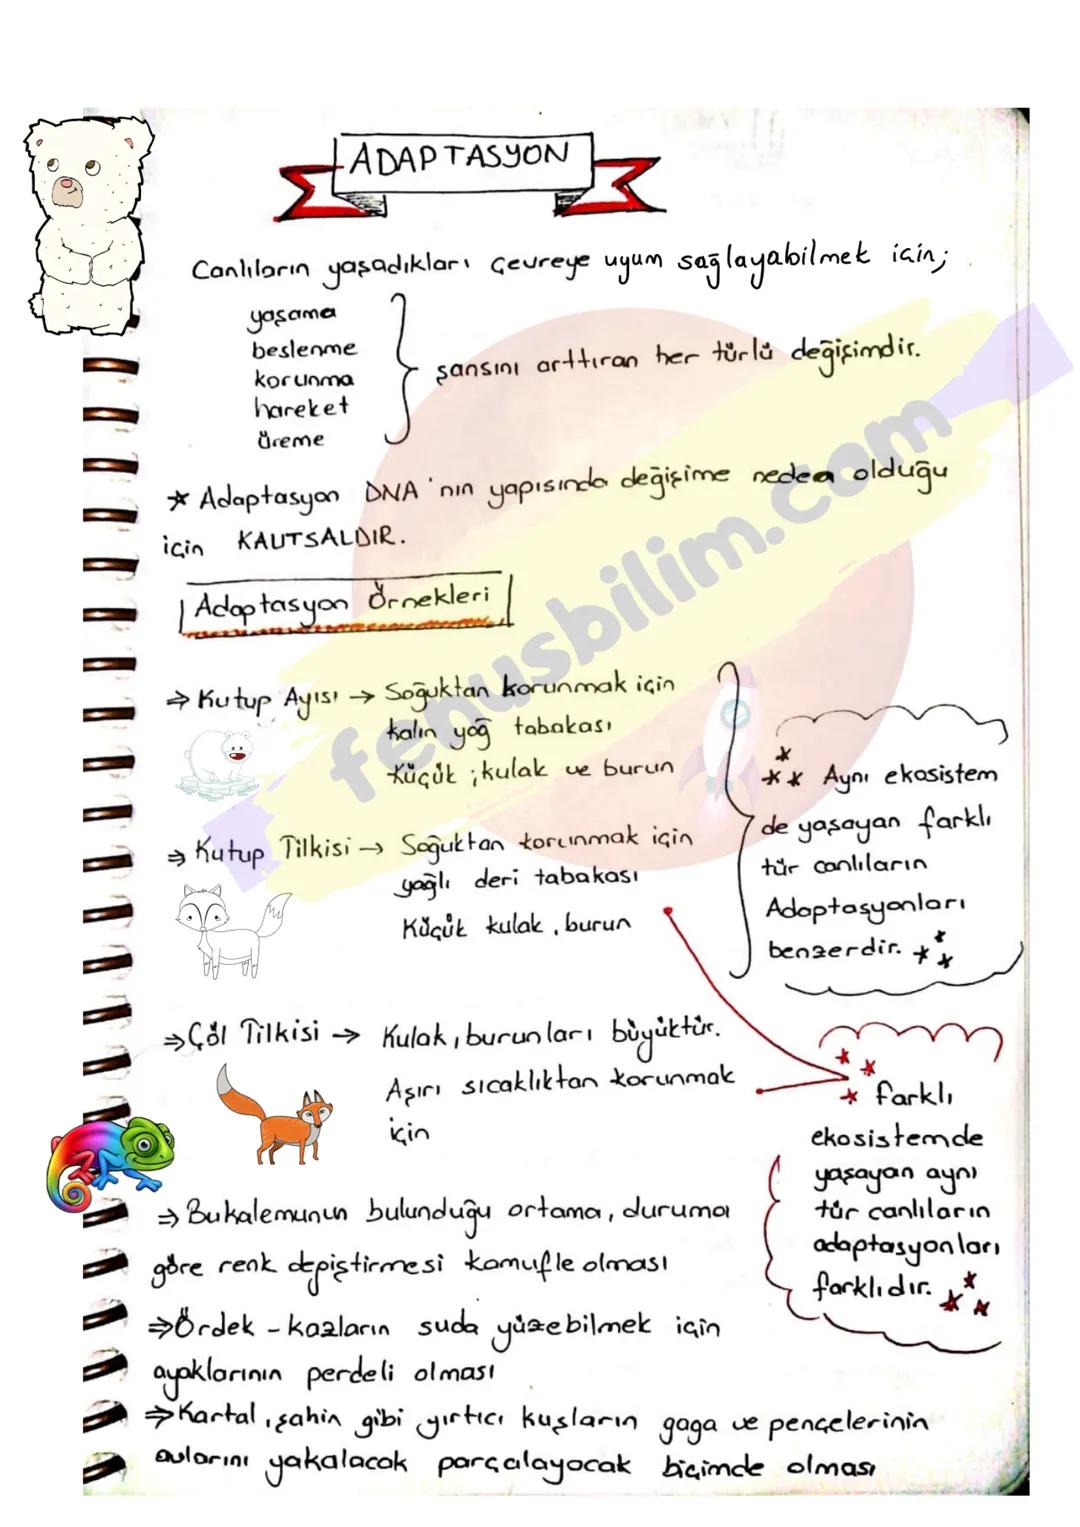 ADAPTASYON
Canlıların yaşadıkları çevreye uyum sağlayabilmek için;
yaşama
beslenme
korunma
hareket
üreme
şansını arttıran her türlü değişimdir.
* Adaptasyon DNA'nın yapısında değişime neden olduğu
için KALITSALDIR.
Adaptasyon Örnekleri
⇒ Kutup Ayısı → Soğuktan korunmak için
kalın yağ tabakası
küçük ; kulak ve burun
⇒ Kutup Tilkisi → Soğuktan korunmak için
yağlı deri tabakası
Küçük kulak, burun
*** Aynı ekosistem
de yaşayan farklı
tür canlıların
Adaptasyonları
benzerdir. ***
⇒ Çöl Tilkisi → Kulak, burunları büyüktür.
Aşırı sıcaklıktan korunmak
için
*** farklı
ekosistemde
yaşayan aynı
tür canlıların
adaptasyonları
farklıdır. ***
⇒ Bukalemunun bulunduğu ortama, duruma
göre renk depiştirmesi kamufle olması
⇒ Ördek - kazların suda yüzebilmek için
ayaklarının perdeli olması
⇒ Kartal, şahin gibi yırtıcı kuşların gaga ve pençelerinin
avlarını yakalacak parçalayacak biçimde olması
fenusbilim.com